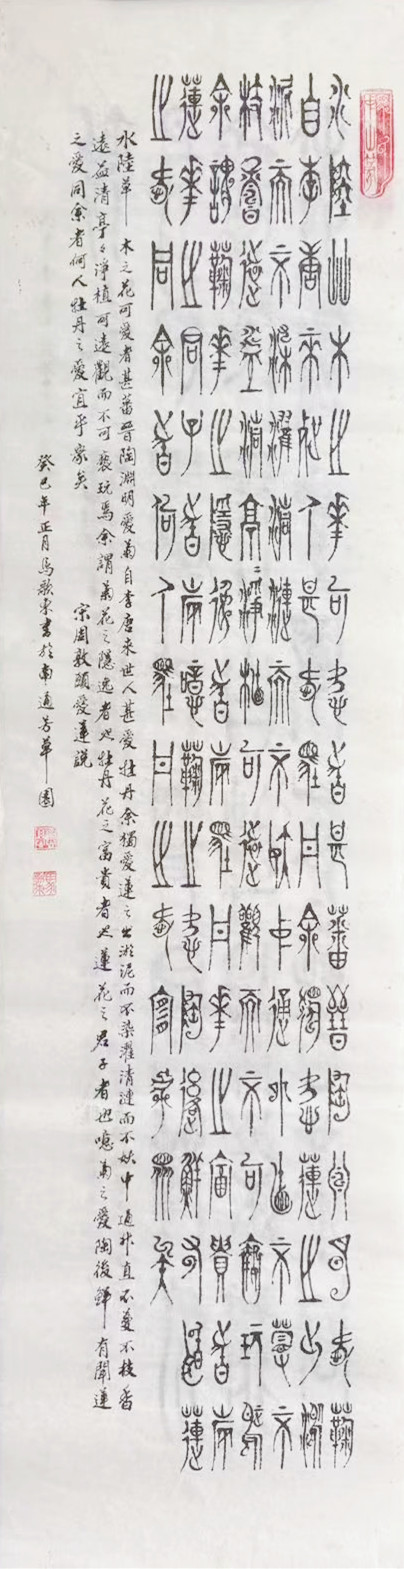 水陸艸木之華可愛者甚蕃晉陶淵明愛鞠
自李唐來世人甚愛牡丹余獨愛蓮之出淤
泥而不染濯清漣而不妖中通外直不蔓不
枝香遠益清亭々淨植可遠觀而不可褻玩焉
余謂鞠華之隱逸者也牡丹華之富貴者也
蓮華之君子者也噫鞠之愛陶後鮮有聞蓮
之愛同余者何人牡丹之愛宜乎衆矣
水陸草木之花可愛者甚蕃晉陶淵明愛菊自李唐來世人甚愛牡丹余獨愛蓮之出淤泥而不染濯清漣而不妖中通外直不蔓不枝香
遠益清亭々淨植可遠觀而不可褻玩焉余謂菊花之隱逸者也牡丹花之富貴者也蓮花之君子者也噫菊之愛陶後鮮有聞蓮
之愛同余者何人牡丹之愛宜乎衆矣 宋周敦頤愛蓮說
癸巳年正月馬歌東書於南通芳草園